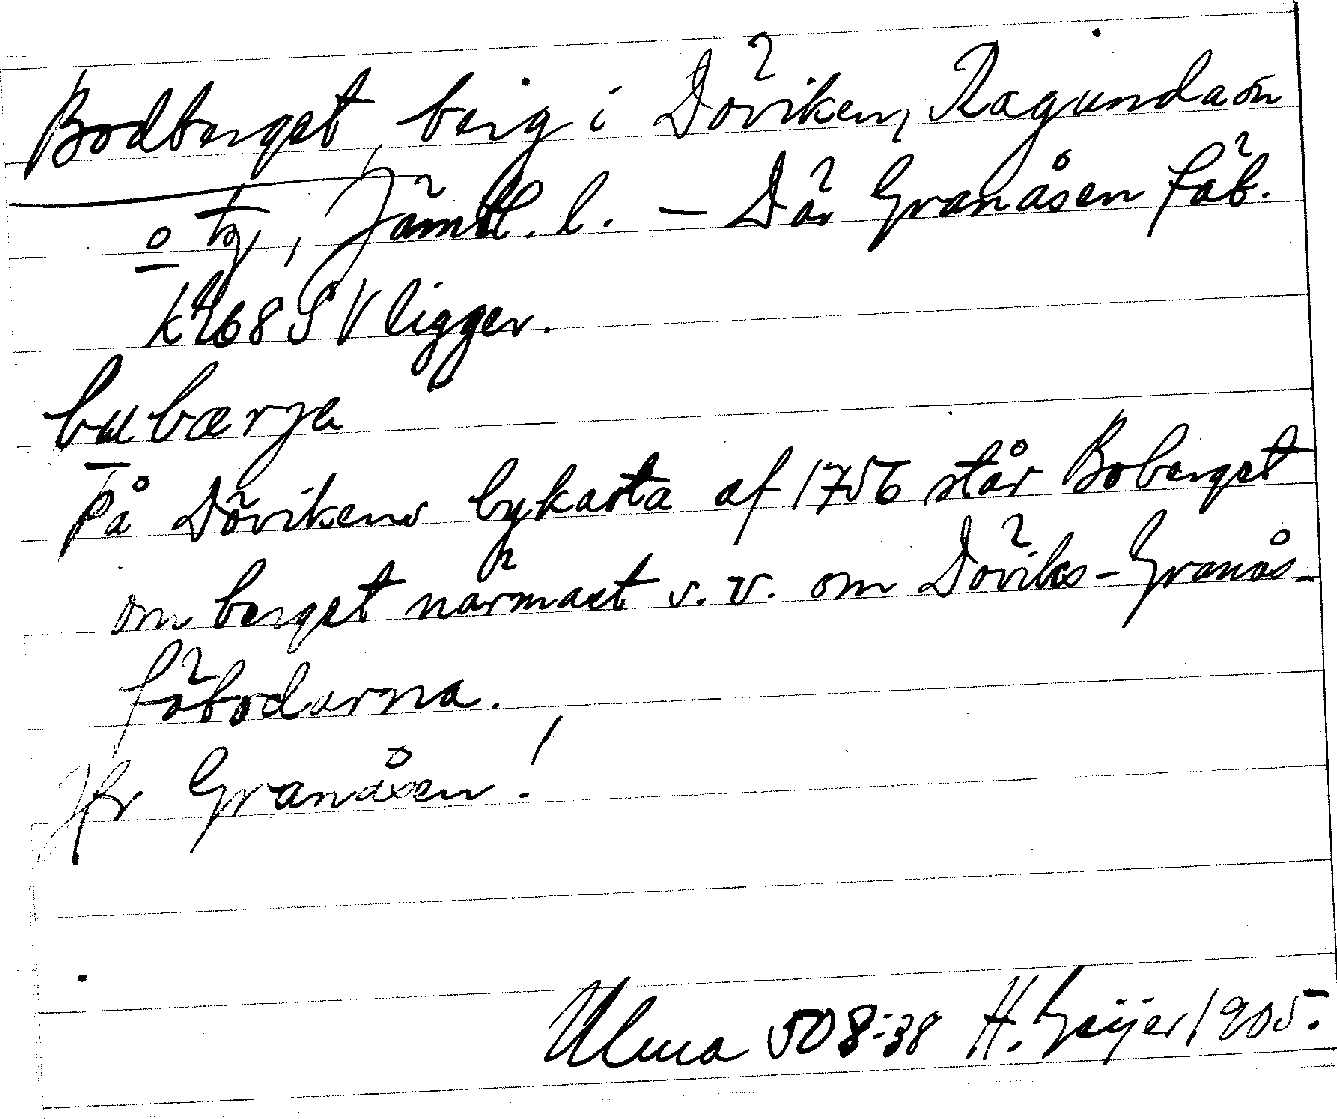 Bodberget, berg i Döviken, Ragunda sn
o tg, Jämtl. l. – Där Granåsen fäb.
k 268 SV ligger.
bubærje
På Dövikens bykarta af 1756 står Boberget
om berget närmast s.v. om Döviks-Granås-
fäbodarna.
Jfr Granåsen!
Ulma 508:38 H. Geijer 1905.